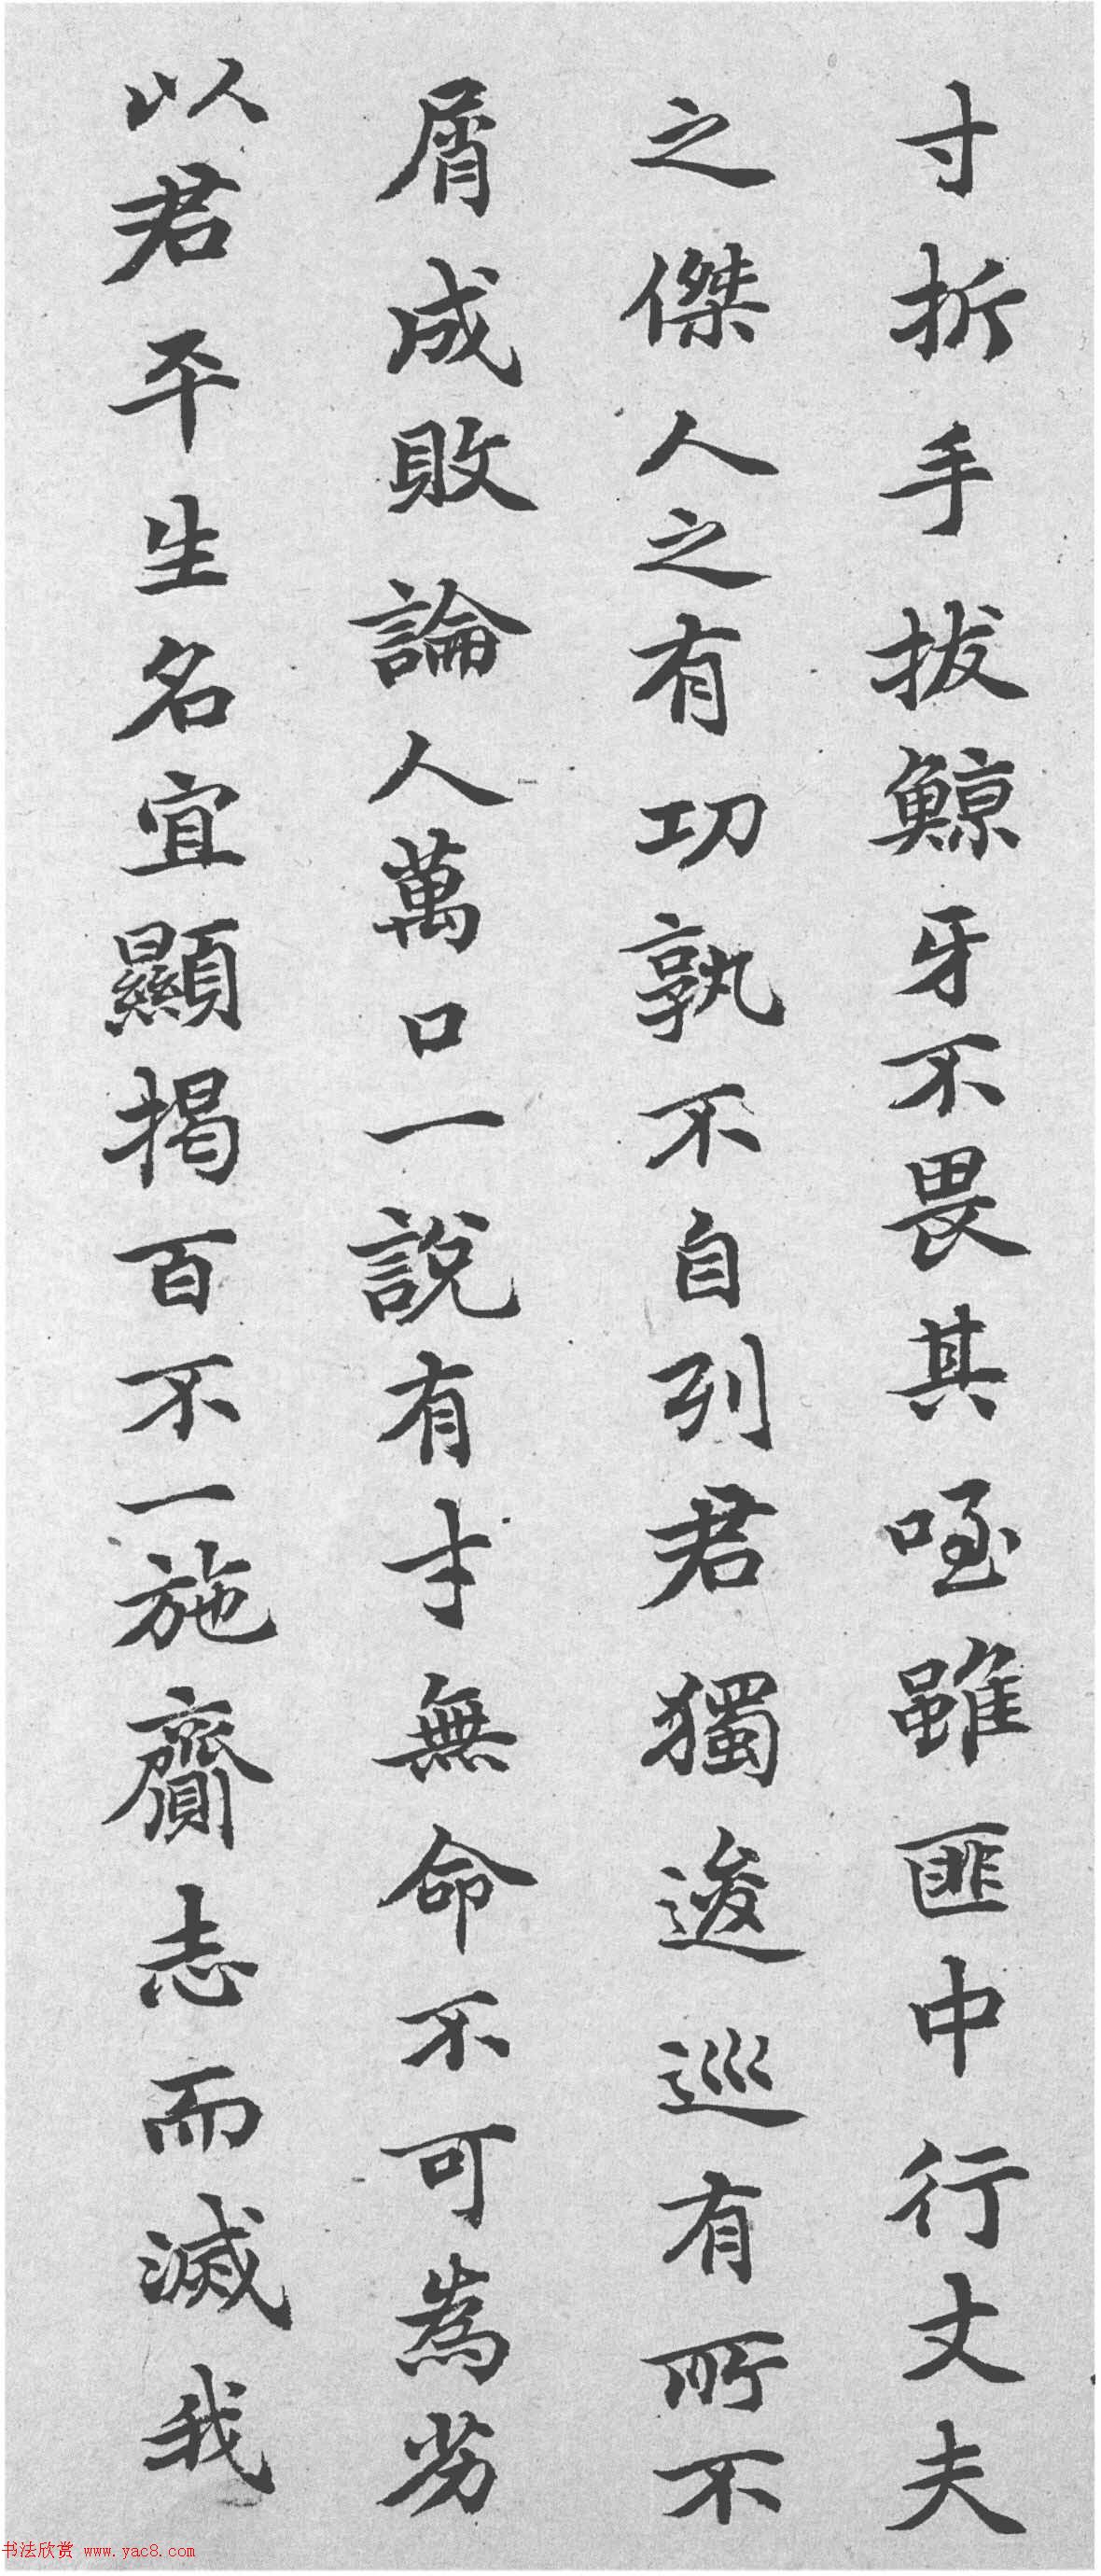 寸折手拔鯨牙不畏其咥雖匪中行丈夫
之傑人之有功孰不自列君獨逡巡有所不
屑成敗論人萬口一說有才無命不可為劣
以君平生名宜顯揭百不一施齎志而滅我
书法欣赏 www.yac8.com